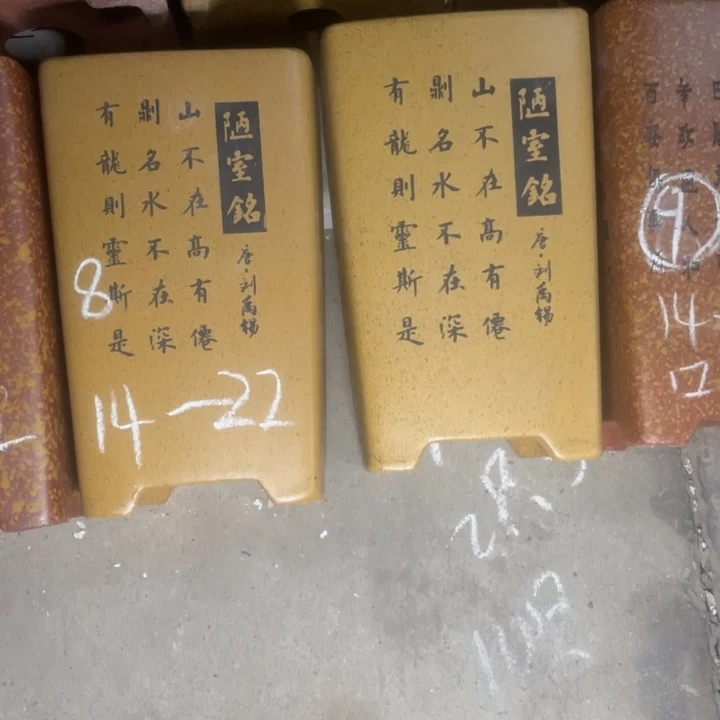 陋室銘
唐·刘禹錫
山不在高有僊
則名水不在深
有龍則靈斯是
8
14-22
陋室銘
唐·刘禹錫
山不在高有僊
則名水不在深
有龍則靈斯是
9
14-
12